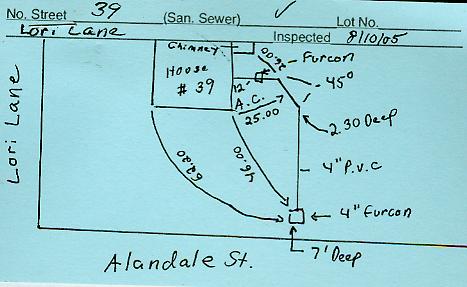 No. Street 39 (San. Sewer) ✓ Lot No.
Lori Lane Inspected 8/10/05
Chimney
House
# 39
26.00
Furcon
45°
12'
A.C.
25.00
2.30 Deep
Lori Lane
62.20
46.00
4" P.V.C
4" Furcon
7' Deep
Alandale St.